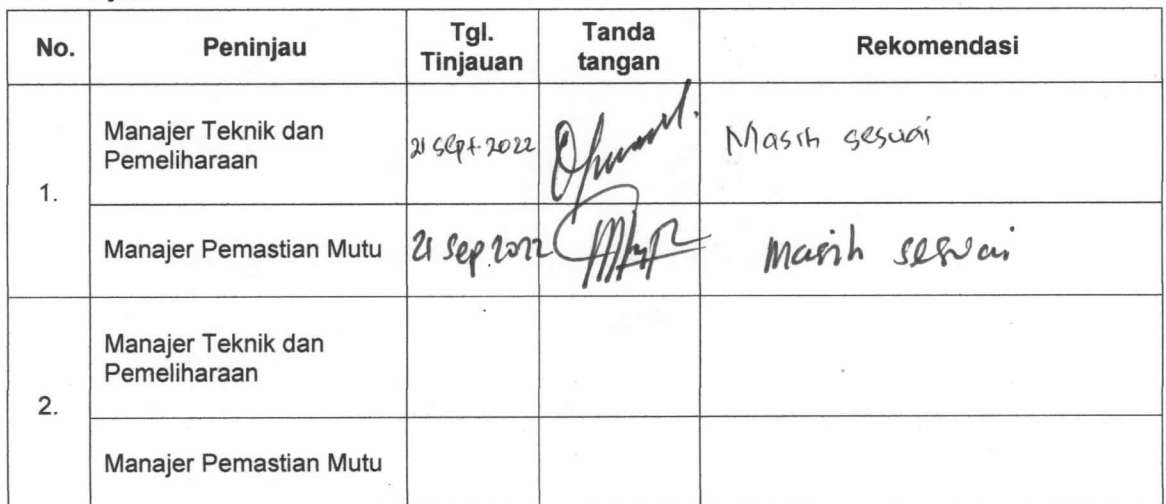 No.
Peninjau
Tgl.
Tinjauan
Tanda
tangan
Rekomendasi
1.
Manajer Teknik dan
Pemeliharaan
21 Sept. 2022
Masih sesuai
Manajer Pemastian Mutu
21 Sep 2022
Masih sesuai
2.
Manajer Teknik dan
Pemeliharaan
Manajer Pemastian Mutu